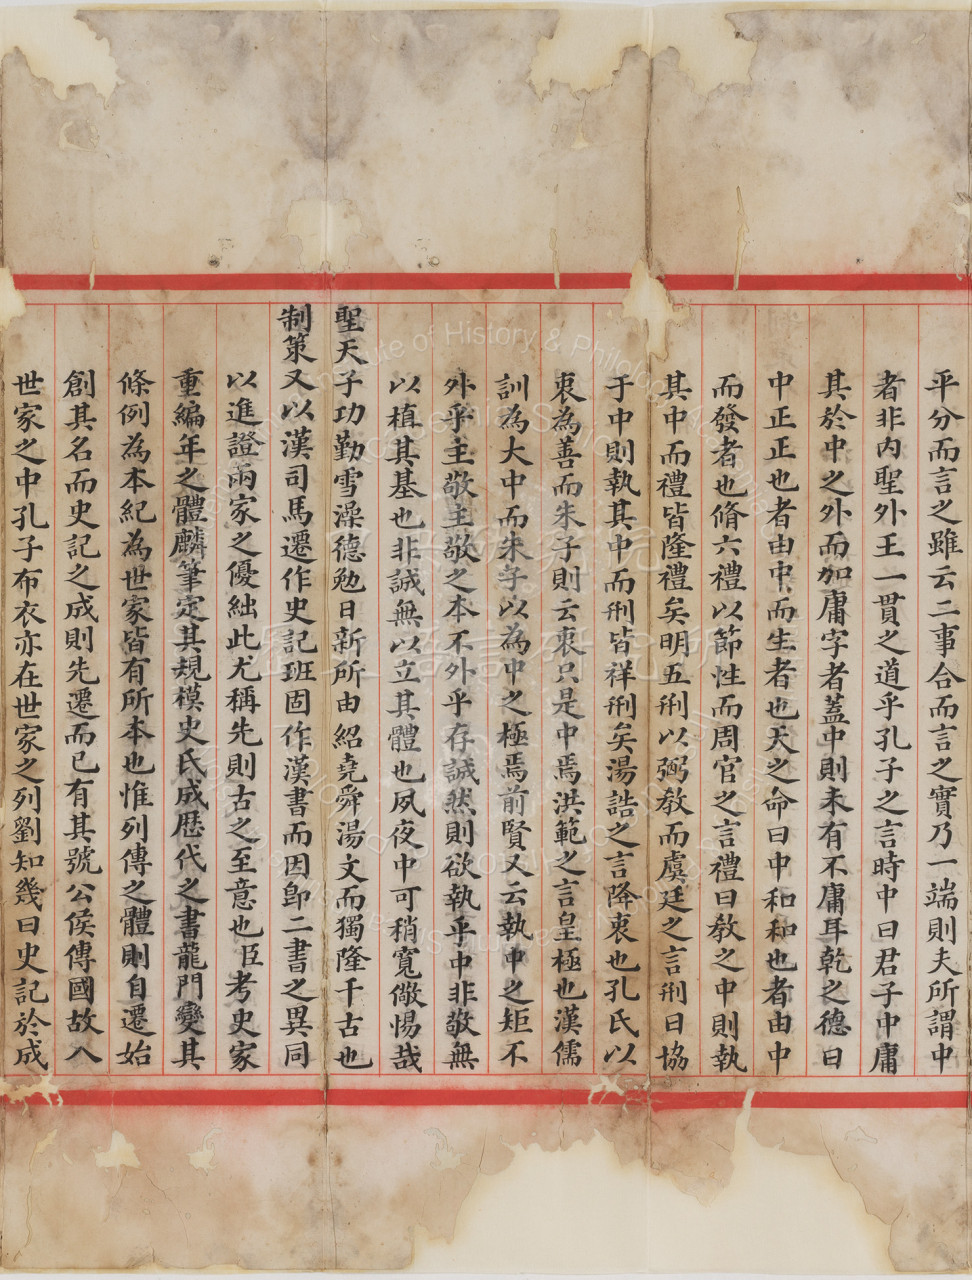 平分而言之雖云二事合而言之實乃一端則夫所謂中
者非内聖外王一貫之道乎孔子之言時中曰君子中庸
其於中之外而加庸字者蓋中則未有不庸耳乾之德曰
中正正也者由中而生者也天之命曰中和和也者由中
而發者也脩六禮以節性而周官之言禮曰教之中則執
其中而禮皆隆禮矣明五刑以弼教而虞廷之言刑曰協
于中則執其中而刑皆祥刑矣湯誥之言降衷也孔氏以
衷為善而朱子則云衷只是中焉洪範之言皇極也漢儒
訓為大中而朱子以為中之極焉前賢又云執中之矩不
外乎主敬主敬之本不外乎存誠然則欲執乎中非敬無
以植其基也非誠無以立其體也夙夜中可稍寬儆惕哉
聖天子功勤雪澡德勉日新所由紹堯舜湯文而獨隆千古也
制策又以漢司馬遷作史記班固作漢書而因卽二書之異同
以進證兩家之優絀此尤稱先則古之至意也臣考史家
重編年之體麟筆定其規模史氏成歷代之書龍門變其
條例為本紀為世家皆有所本也惟列傳之體則自遷始
創其名而史記之成則先遷而已有其號公侯傳國故入
世家之中孔子布衣亦在世家之列劉知幾曰史記於成